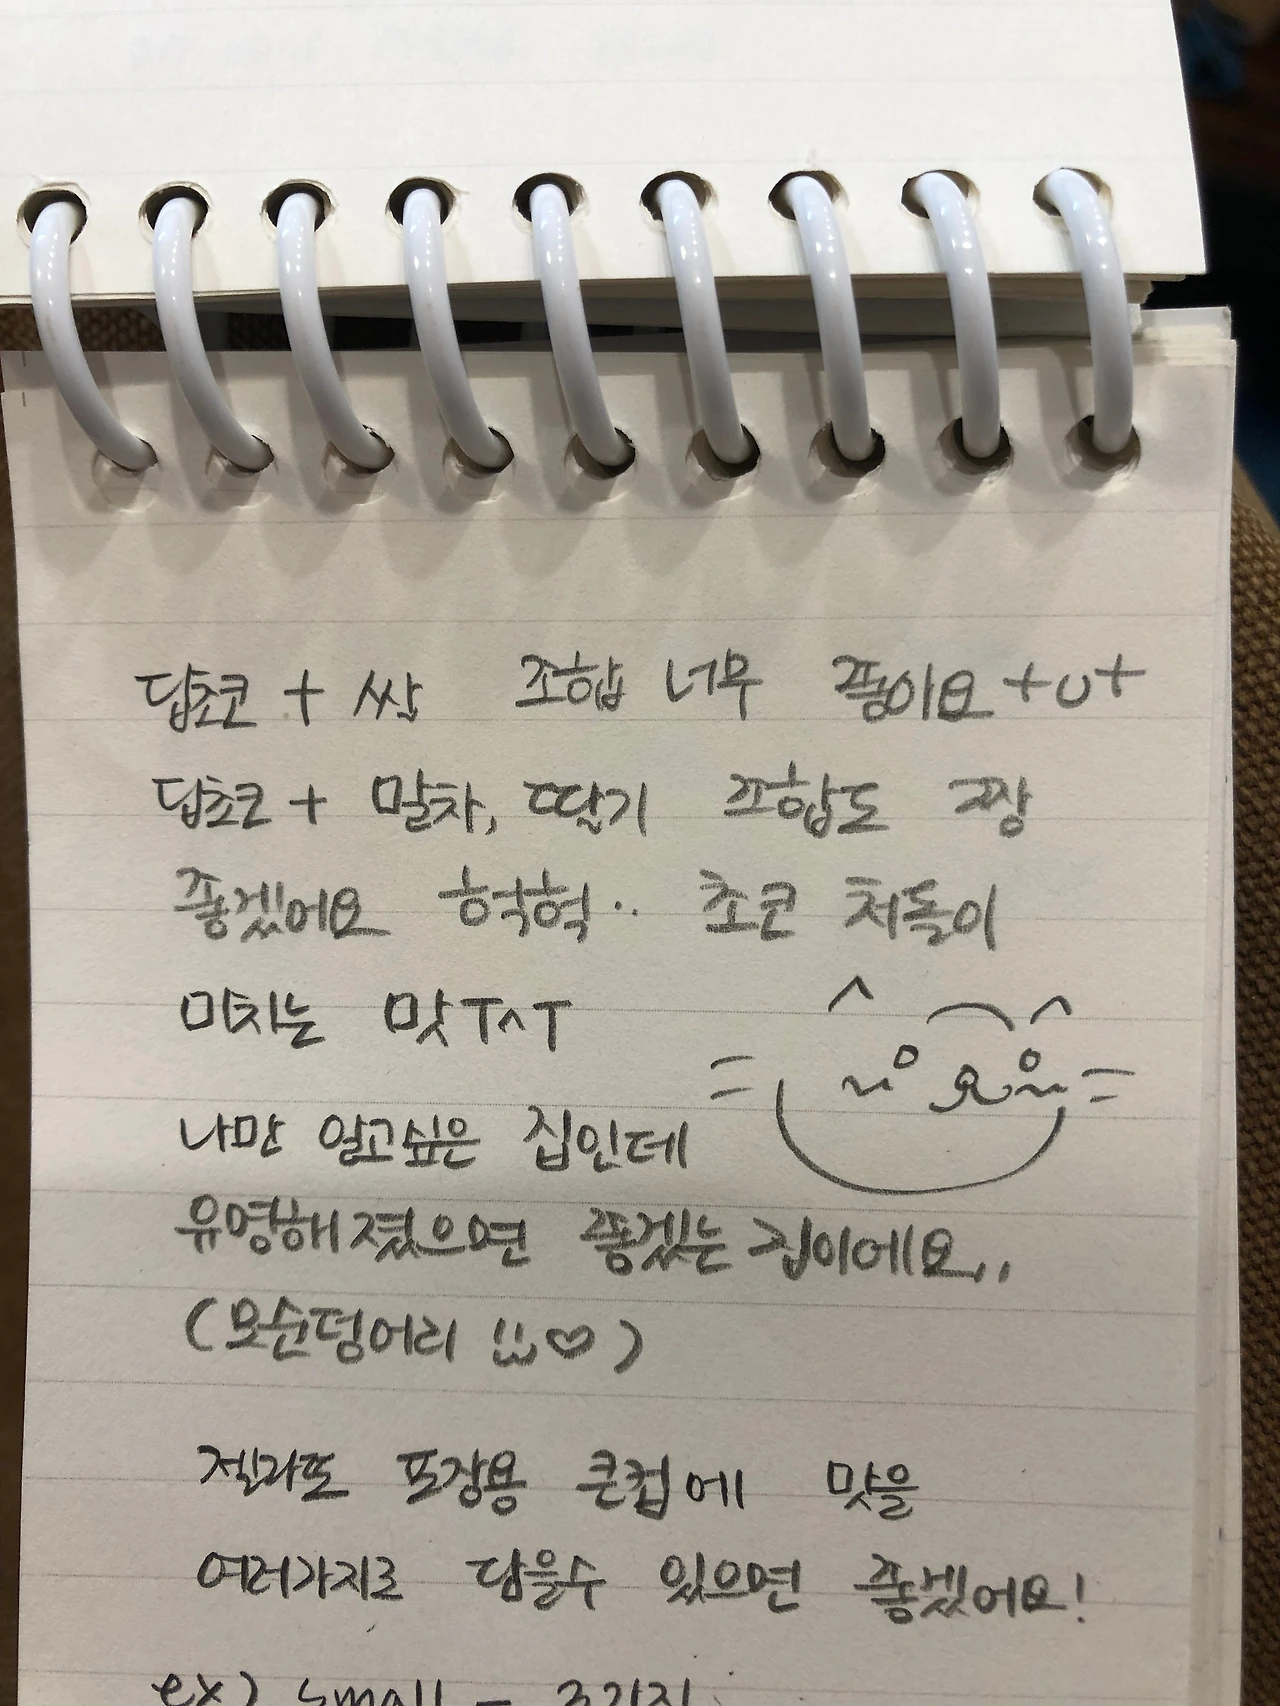 딥초코 + 쌀 조합 너무 좋아요 +u+
딥초코 + 말차, 딸기 조합도 짱
좋겠어요 헉헉.. 초코 처돌이
미치는 맛 ㅜㅅㅜ
나만 알고싶은 집인데
유명해졌으면 좋겠는 집이에요..
(모순덩어리 ♡)
젤라또 포장용 큰컵에 맛을
여러가지로 담을수 있으면 좋겠어요!
ex) small - 3가지